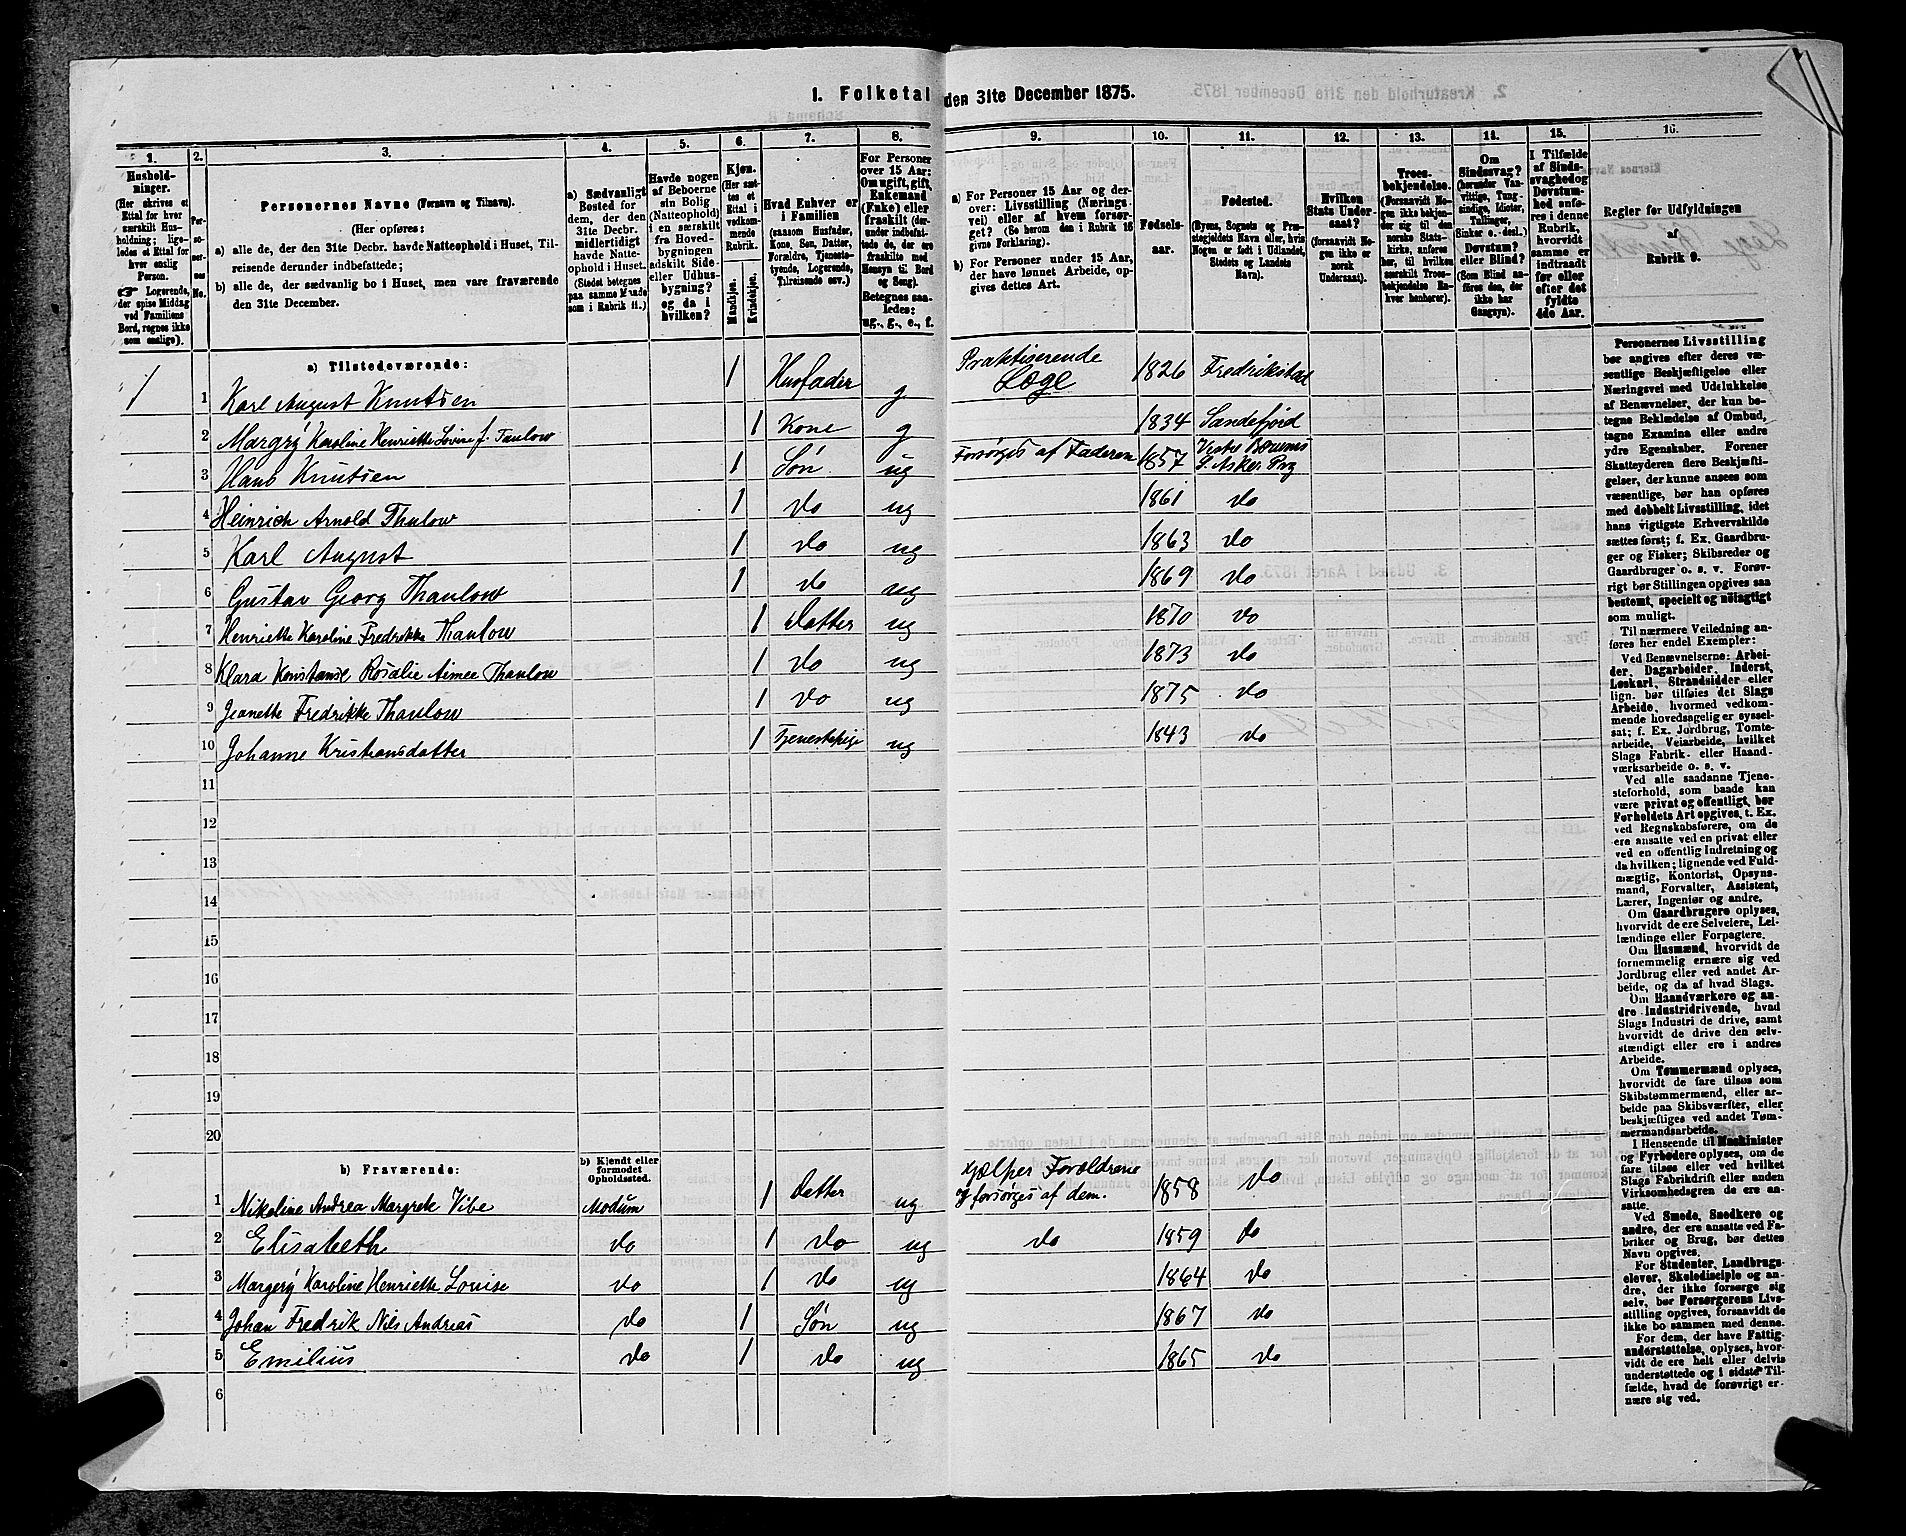 1. Folketal den 31te December 1875.
1. 2. 3. 4. 5. 6. 7. 8. 9. 10. 11. 12. 13. 14. 15. 16.
Hushold-
ninger.
(Her skrives et
Ettal for hver
særskilt Hus-
holdning; lige-
ledes et Ettal for
hver enslig
Person.
☞ Logerende,
der spise Middag
ved Familiens
Bord, regnes ikke
som enslige).
Per-
so-
ner-
nes
No.
Personernes Navne (Fornavn og Tilnavn).
(Her opføres:
a) alle de, der den 31te Decbr. havde Natteophold i Huset, Til-
reisende derunder indbefattede;
b) alle de, der sædvanlig bo i Huset, men vare fraværende
den 31te December.
a) Sædvanligt
Bosted for
dem, der den
31te Decbr.
midlertidigt
havde Natte-
ophold i Huset.
(Stedet betegnes
paa samme Maade
som i Rubrik 11.)
Havde nogen
af Beboerne
sin Bolig
(Natteophold)
i en særskilt
fra Hoved-
bygningen
adskilt Side-
eller Udhus-
bygning?
og da i
hvilken?
Kjøn.
(Her sæt-
tes et
Ettal i
vedkom-
mende
Rubrik.
Mandkjøn.
Kvindekjøn.
Hvad Enhver er
i Familien
(saasom Husfader,
Kone, Søn, Datter,
Forældre, Tjeneste-
tyende, Logerende,
Tilreisende osv.)
For Personer
over 15 Aar:
Om ugift, gift,
Enkemand
(Enke) eller
fraskilt (der-
under indbefat-
tede de, der ere
fraskilte med
Hensyn til Bord
og Seng).
Betegnes saa-
ledes:
ug., g., e., f.
a) For Personer 15 Aar og der-
over: Livsstilling (Nærings-
vei) eller af hvem forsør-
get? (Se herom den i Rubrik 16
givne Forklaring).
b) For Personer under 15 Aar,
der have lønnet Arbeide, op-
gives dettes Art.
Fødsels-
aar.
Fødested.
(Byens, Sognets og Præ-
stegjeldets Navn eller, hvis
Nogen er født i Udlandet,
Stedets og Landets
Navn).
Hvilken
Stats Under-
saat?
(forsaavidt No-
gen ikke er
norsk
Undersaat).
Troes-
bekjendelse.
(Forsaavidt No-
gen ikke bekjen-
der sig til den
norske Stats-
kirke, anføres
her, til hvilken
særskilt Troes-
bekjendelse Ra-
kver henhører).
Om
Sindssvag?
(herunder Van-
vittige, Tung-
sindige, Idioter,
Tullinger,
Sinker o. desl.)
Døvstum?
eller Blind?
(Som Blind an-
føres den, der
ikke har
Gangsyn).
I Tilfælde
af Sinds-
svaghed og
Døvstum-
hed anføres
i denne
Rubrik,
hvorvidt
samme er
indtraadt
før eller
efter det
fyldte
4de Aar.
Regler for Udfyldningen
af
Rubrik 9.
a) Tilstedeværende:
1 1 Karl August Knutsen 1 Husfader g Praktiserende Læge 1826 Fredrikstad
2 Margrÿ Karoline Henriette Lovise f. Taulow 1 Kone g 1834 Sandefjord
3 Hans Knutsen 1 Søn ug Forsørges af Faderen 1857 Vestre Bærums S. Asker Prg
4 Heinrich Arnold Thulow 1 do ug 1861 do
5 Karl August 1 do ug 1863 do
6 Gustav Georg Thaulow 1 do ug 1869 do
7 Henriette Karoline Fredrikke Thaulow 1 Datter ug 1870 do
8 Klara Konstanse Rosalie Aimee Thaulow 1 do ug 1873 do
9 Jeanette Fredrikke Thaulow 1 do ug 1875 do
10 Johanne Kristiansdatter 1 Tjenestepige ug 1843 do
11
12
13
14
15
16
17
18
19
20
b) Fraværende:
b) Kjendt eller
formodet
Opholdssted.
1 Nikoline Andrea Margrete Vibe Modum 1 Datter ug Hjælper Forældrene og forsørges af dem. 1858 do
2 Elisabeth do 1 do ug do 1859 do
3 Margerÿ Karoline Henriette Louise do 1 do ug 1864 do
4 Johan Fredrik Nils Andreas do 1 Søn ug 1867 do
5 Emilius do 1 do ug 1865 do
6
Personernes Livsstilling
bør angives efter deres væ-
sentlige Beskjæftigelse eller
Næringsvei med Udelukkelse
af Benævnelser, der kun be-
tegne Beklædelse af Ombud,
tagne Examina eller andre
ydre Egenskaber. Forener
Skatteyderen flere Beskjæfti-
gelser, der kunne ansees som
væsentlige, bør han opføres
med dobbelt Livsstilling, idet
hans vigtigste Erhvervskilde
sættes først; f. Ex. Gaardbru-
ger og Fisker; Skibsreder og
Gaardbruger o. s. v. Forøv-
rigt bør Stillingen opgives saa
bestemt, specielt og nöiagtigt
som muligt.
Til nærmere Veiledning an-
føres her endel Exempler:
Ved Benævnelserne: Arbei-
der, Dagarbeider, Inderst,
Løskarl, Strandsidder eller
lign. bør tilføies det Slags
Arbeide, hvormed vedkom-
mende hovedsagelig er syssel-
sat; f. Ex. Jordbrug, Tomte-
arbeide, Veiarbeide, hvilket
Slags Fabrik- eller Haand-
værksarbeide o. s. v.
Ved alle saadanne Tjene-
steforhold, som baade kan
være privat og offentligt, bør
Forholdets Art opgives, t. Ex.
ved Regnskabsførere, om de
ere ansatte ved en privat eller
ved en offentlig Indretning og
da hvilken; lignende ved Fuld-
mægtig, Kontorist, Opsyns-
mand, Forvalter, Assistent,
Lærer, Ingeniør og andre.
Om Gaardbrugere oplyses,
hvorvidt de ere Selveiere, Lei-
lændinge eller Forpagtere.
Om Husmænd, hvorvidt de
fornemmelig ernære sig ved
Jordbrug eller ved andet Ar-
beide, og da af hvad Slags.
Om Haandværkere og an-
dre Industridrivende, hvad
Slags Industri de drive, samt
hvorvidt de drive den selv-
stændigt eller ere i andres
Arbeide.
Om Tømmermænd oplyses,
hvorvidt de fare tilsøs som
Skibstømmermænd, eller ar-
beide paa Skibsværfter, eller
beskjæftiges ved andet Tøm-
mermandsarbeide.
I Henseende til Maskinister
og Fyrbødere oplyses, om de
fare tilsøs eller ved hvilket
Slags Fabrikdrift eller anden
Virksomhedsgren de ere an-
satte.
Ved Smede, Snedkere og
andre, der ere ansatte ved Fa-
briker og Brug, bør dettes
Navn opgives.
For Studenter, Landbrugs-
elever, Skoledisciple og an-
dre, der ikke forsørge sig
selv, bør Forsørgerens Livs-
stilling opgives, forsaavidt de
ikke bo sammen med denne.
For dem, der have Fattig-
understøttelse, oplyses, hvor-
vidt de ere helt eller delvis
understøttede og i sidste Til-
fælde, hvad de forøvrigt er-
nære sig ved.